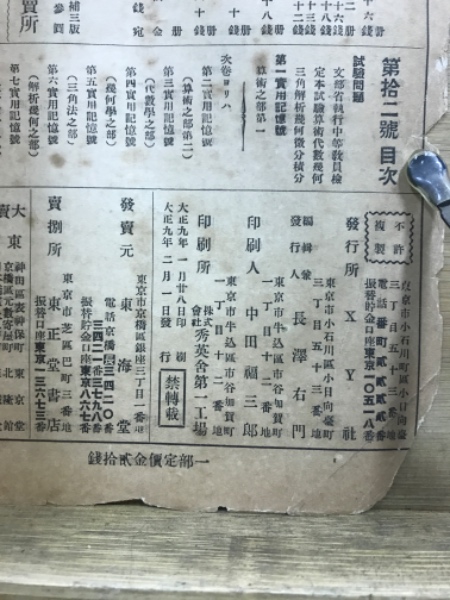 第拾二號目次
試驗問題
文部省執行中等敎員檢
定本試驗算術代數幾何
三角解析幾何微分積分
第一實用記憶號
算術之部第一
次卷ヨリハ
第二實用記憶號
(算術之部第二)
第三實用記憶號
(代數學之部)
第四實用記憶號
(幾何學之部)
第五實用記憶號
(三角法之部)
第六實用記憶號
(解析幾何之部)
第七實用記憶號
賣所
不許
複製
發行所
東京市小石川區小日向臺町
三丁目五十三番地
XY社
電話番町貳貳貳貳番
振替貯金口座東京一〇五一八番
東京市小石川區小日向臺町
三丁目五十三番地
編輯兼
發行人
長澤右門
東京市牛込區市谷加賀町
一丁目十二番地
印刷人
中田福三郎
東京市牛込區市谷加賀町
一丁目十二番地
印刷所
株式
會社
秀英舍第一工場
大正九年一月廿八日印刷
大正九年二月一日發行
禁轉載
發賣元
東京市京橋區銀座三丁目二番地
東海堂
振替貯金口座東京八六七番
賣捌所
東京市芝區巴町三番地
東正堂書店
振替口座東京一三六七三番
神田區表神保町
東京堂
北隆館
一部定價金貳拾錢